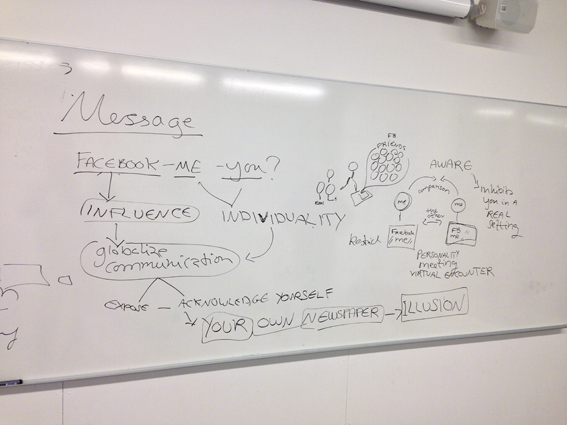 Message
FACEBOOK - ME - you?
INFLUENCE
INDIVIDUALITY
globalize
communication
EXPOSE - ACKNOWLEDGE YOURSELF
YOUR OWN NEWSPAPER → ILLUSION
FB
FRIENDS
AWARE
me
me
Facebook
me
FB
me
the
other
inhibits
you in A
REAL
Setting
PERSONALITY
meeting
VIRTUAL ENCOUNTER